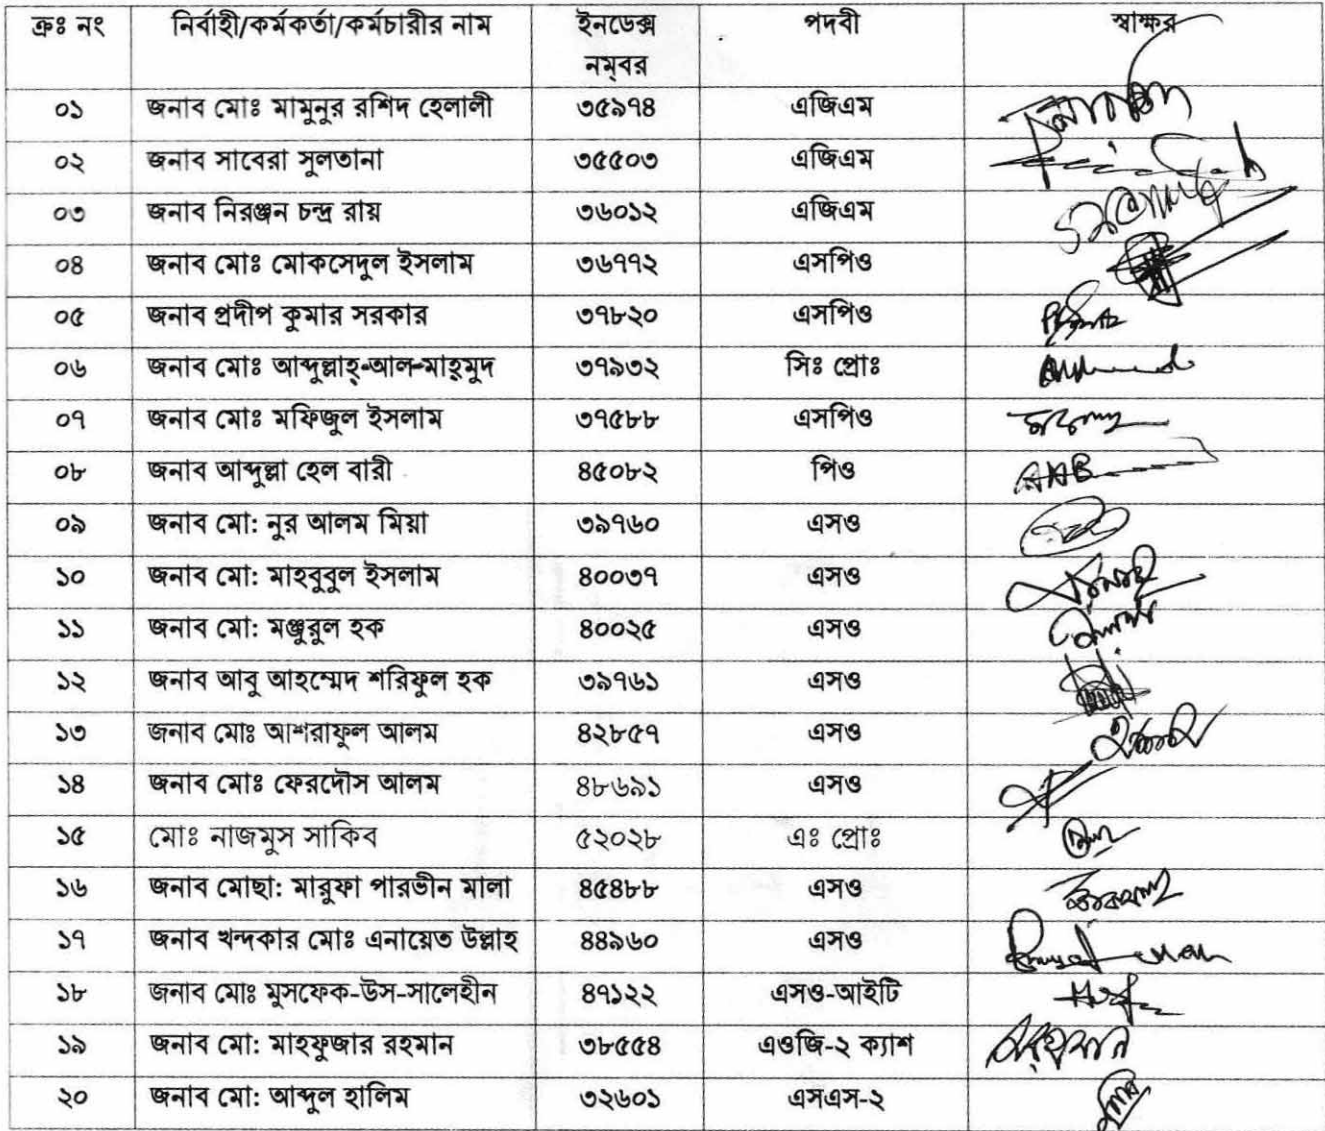 ক্রঃ নং নির্বাহী/কর্মকর্তা/কর্মচারীর নাম ইনডেক্স নম্বর পদবী স্বাক্ষর
০১ জনাব মোঃ মামুনুর রশিদ হেলালী ৩৫৯৭৪ এজিএম
০২ জনাব সাবেরা সুলতানা ৩৫৫০৩ এজিএম
০৩ জনাব নিরঞ্জন চন্দ্র রায় ৩৬০১২ এজিএম
০৪ জনাব মোঃ মোকসেদুল ইসলাম ৩৬৭৭২ এসপিও
০৫ জনাব প্রদীপ কুমার সরকার ৩৭৮২০ এসপিও
০৬ জনাব মোঃ আব্দুল্লাহ্-আল-মাহ্মুদ ৩৭৯৩২ সিঃ প্রোঃ
০৭ জনাব মোঃ মফিজুল ইসলাম ৩৭৫৮৮ এসপিও
০৮ জনাব আব্দুল্লা হেল বারী ৪৫০৮২ পিও
০৯ জনাব মো: নুর আলম মিয়া ৩৯৭৬০ এসও
১০ জনাব মো: মাহবুবুল ইসলাম ৪০০৩৭ এসও
১১ জনাব মো: মঞ্জুরুল হক ৪০০২৫ এসও
১২ জনাব আবু আহম্মেদ শরিফুল হক ৩৯৭৬১ এসও
১৩ জনাব মোঃ আশরাফুল আলম ৪২৮৫৭ এসও
১৪ জনাব মোঃ ফেরদৌস আলম ৪৮৬৯১ এসও
১৫ মোঃ নাজমুস সাকিব ৫২০২৮ এঃ প্রোঃ
১৬ জনাব মোছা: মারুফা পারভীন মালা ৪৫৪৮৮ এসও
১৭ জনাব খন্দকার মোঃ এনায়েত উল্লাহ ৪৪৯৬০ এসও
১৮ জনাব মোঃ মুসফেক-উস-সালেহীন ৪৭১২২ এসও-আইটি
১৯ জনাব মো: মাহফুজার রহমান ৩৮৫৫৪ এওজি-২ ক্যাশ
২০ জনাব মো: আব্দুল হালিম ৩২৬০১ এসএস-২